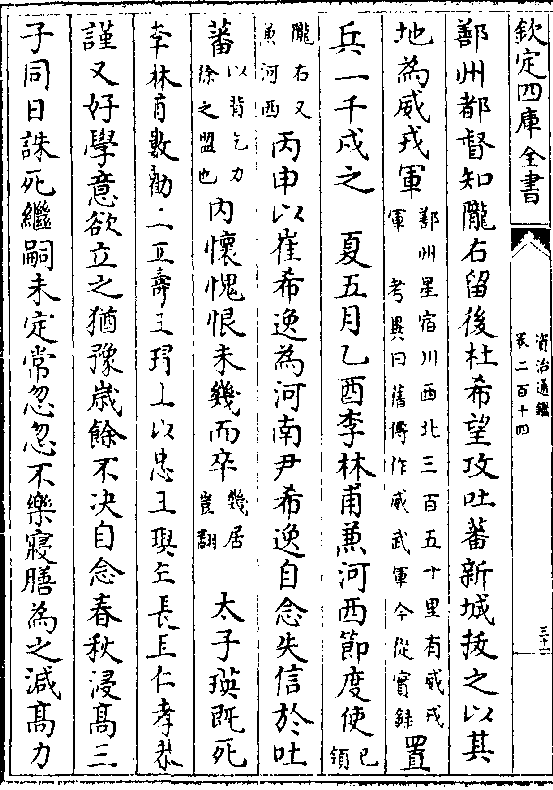 欽定四庫全書
資治通鑑
卷二百十四
三十二
鄯州都督知隴右留後杜希望攻吐蕃新城拔之以其
地為威戎軍鄯州星宿川西北三百五十里有威戎軍考異曰舊傳作威武軍今從實録置
兵一千戍之夏五月乙酉李林甫兼河西節度使已領
隴右又兼河西丙申以崔希逸為河南尹希逸自念失信於吐
蕃以背乞力徐之盟也內懷愧恨未幾而卒幾居豈翻太子瑛既死
李林甫數勸上立壽王瑁上以忠王璵年長且仁孝恭
謹又好學意欲立之猶豫歲餘不决自念春秋浸髙三
子同日誅死繼嗣未定常忽忽不樂寢膳為之減髙力